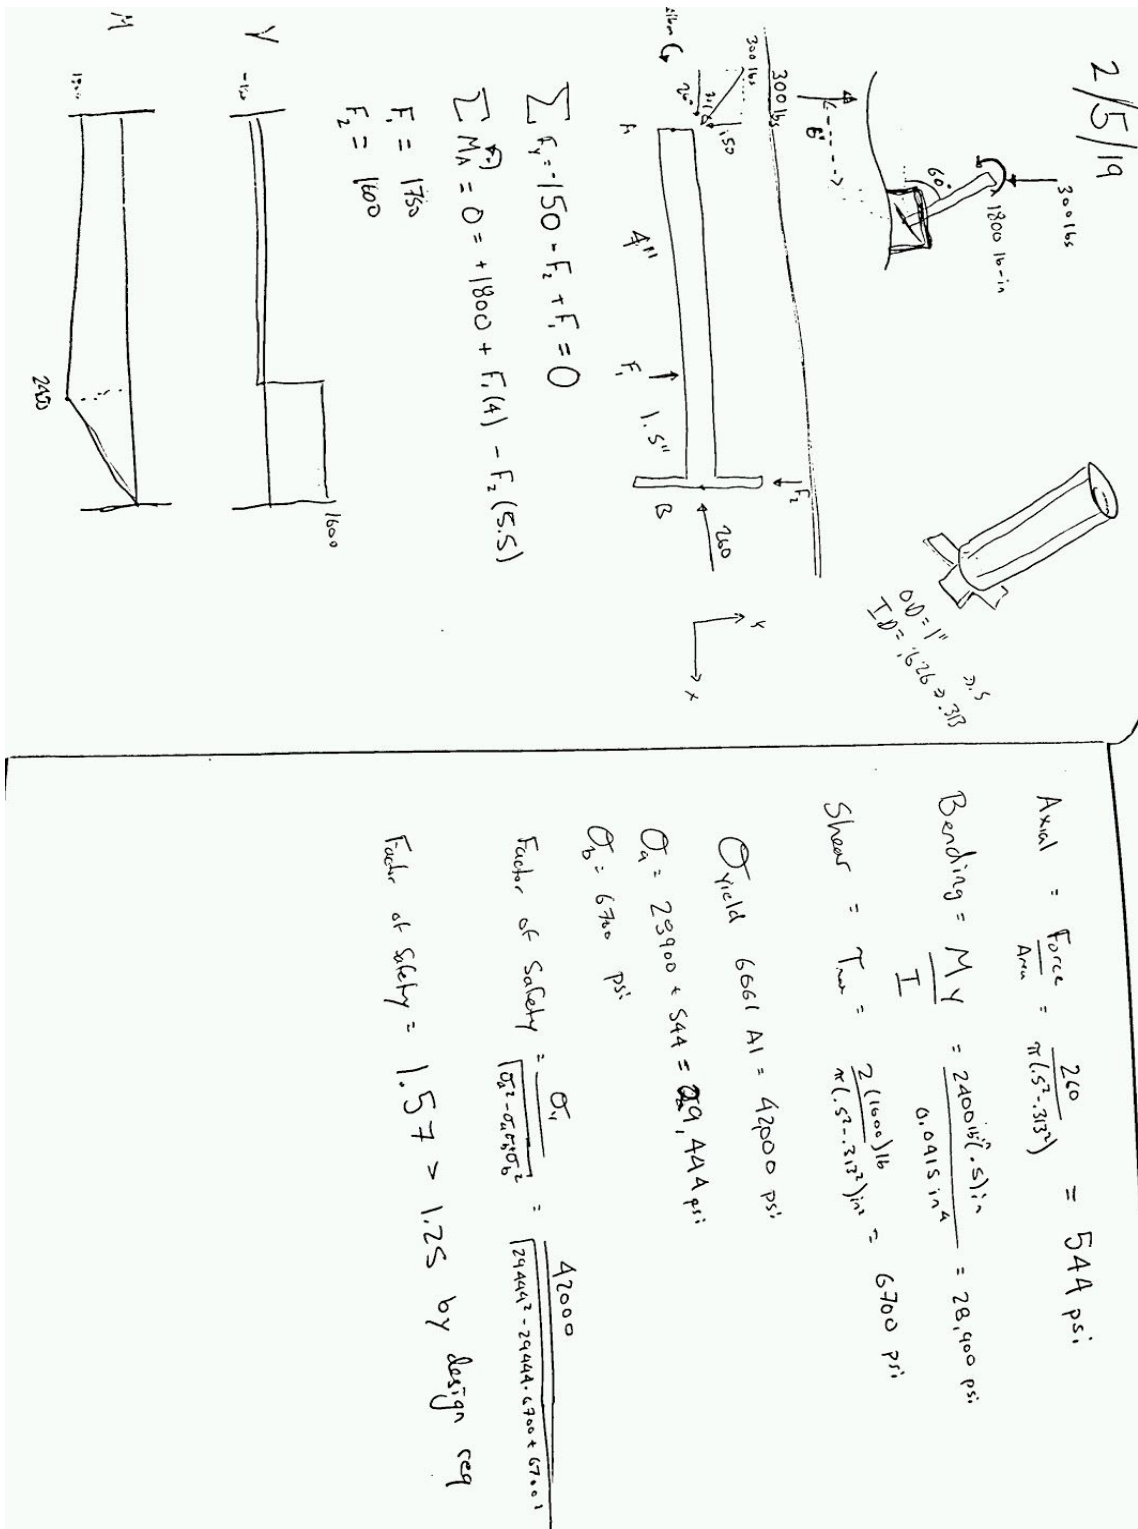 2/5/19
300 lbs
1800 lb-in
60°
6"
300 lbs
OD = 1" ⇒ .5
ID = .626 ⇒ .313
300 lbs
150
A
4"
F₁
1.5"
B
F₂
260
y
x
ΣFy = -150 - F₂ + F₁ = 0
ΣM_A = 0 = +1800 + F₁(4) - F₂(5.5)
F₁ = 1750
F₂ = 1600
V
-150
1600
M
1800
2400
Axial = Force/Area = 260/π(.5²-.313²) = 544 psi
Bending = My/I = 2400 lb in (.5)in/0.0415 in⁴ = 28,900 psi
Shear = Tmax = 2(1600)lb/π(.5²-.313²)in² = 6700 psi
σyield 6061 Al = 42000 psi
σa = 28900 + 544 = 29,444 psi
σb = 6700 psi
Factor of Safety = σy/√(σa²-σaσb+σb²) = 42000/√(29444²-29444·6700+6700²)
Factor of Safety = 1.57 > 1.25 by design req